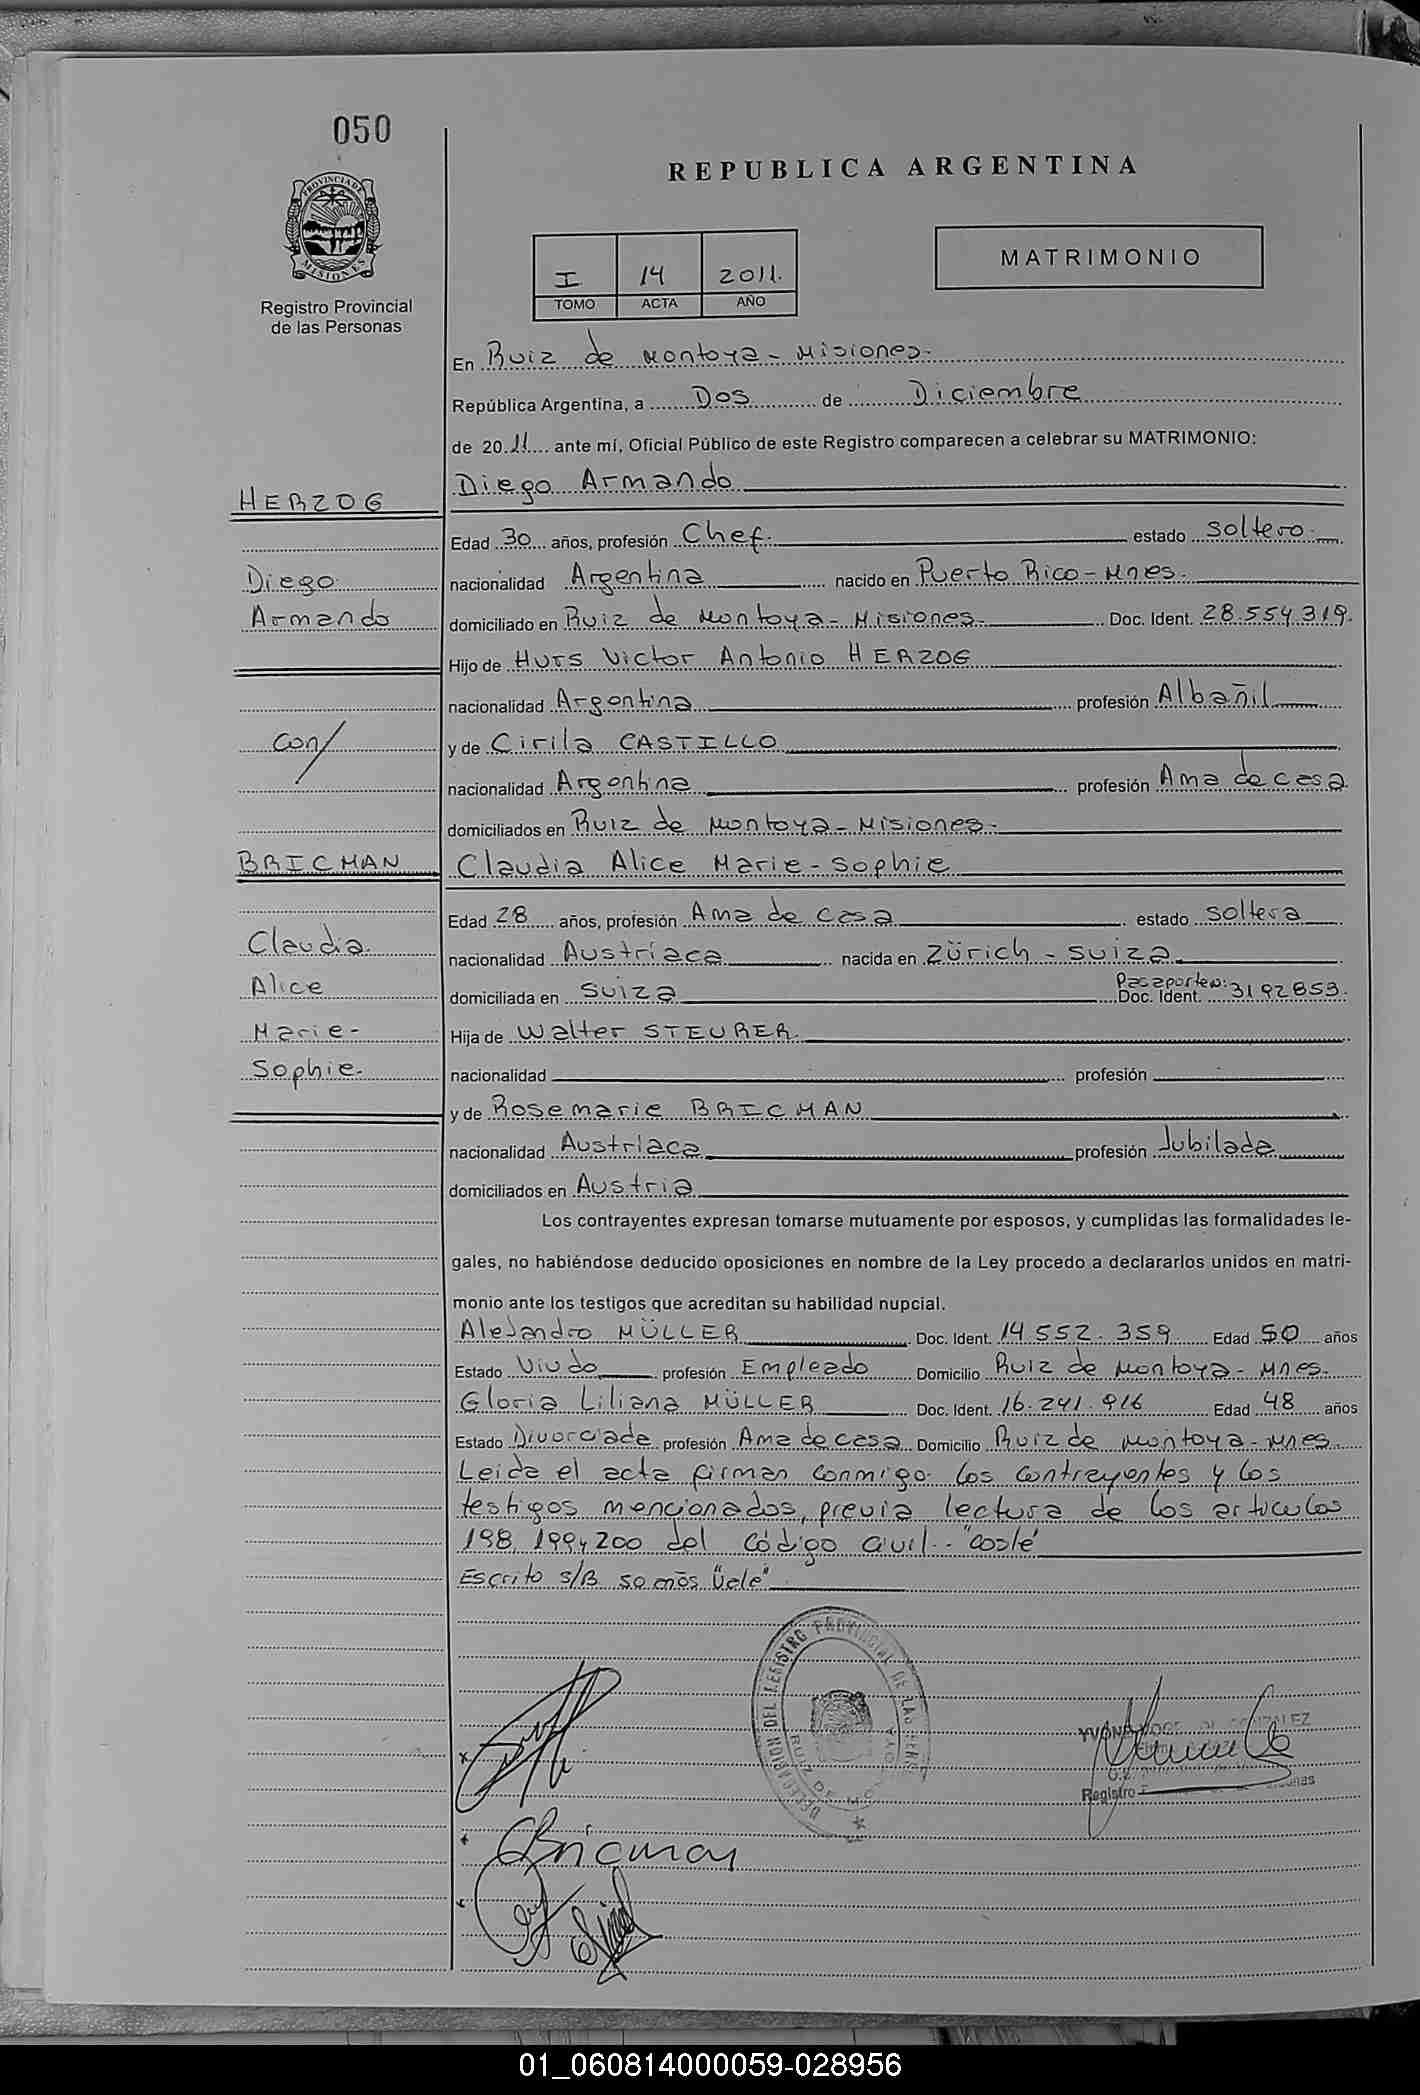 050
REPUBLICA ARGENTINA
PROVINCIA DE
MISIONES
Registro Provincial
de las Personas
I 14 2011.
TOMO ACTA AÑO
MATRIMONIO
En Ruiz de Montoya - Misiones.
República Argentina, a Dos de Diciembre
de 2011 ante mí, Oficial Público de este Registro comparecen a celebrar su MATRIMONIO:
HERZOG Diego Armando
Edad 30 años, profesión Chef. estado soltero.
Diego nacionalidad Argentina nacido en Puerto Rico - Mnes.
Armando domiciliado en Ruiz de Montoya - Misiones. Doc. Ident. 28.554.319.
Hijo de Hurs Victor Antonio HERZOG
nacionalidad Argentina profesión Albañil
con/ y de Cirila CASTILLO
nacionalidad Argentina profesión Ama de casa
domiciliados en Ruiz de Montoya - Misiones.
BRICMAN Claudia Alice Marie - Sophie
Edad 28 años, profesión Ama de casa estado soltera
Claudia nacionalidad Austríaca nacida en Zürich - Suiza.
Alice domiciliada en Suiza Doc. Ident. 3192853.
Marie - Hija de Walter STEURER.
Sophie. nacionalidad profesión
y de Rosemarie BRICMAN
nacionalidad Austriaca profesión Jubilada
domiciliados en Austria
Los contrayentes expresan tomarse mutuamente por esposos, y cumplidas las formalidades le-
gales, no habiéndose deducido oposiciones en nombre de la Ley procedo a declararlos unidos en matri-
monio ante los testigos que acreditan su habilidad nupcial.
Alejandro MÜLLER Doc. Ident. 14.552.359 Edad 50 años
Estado Viudo profesión Empleado Domicilio Ruiz de Montoya - Mnes.
Gloria Liliana MÜLLER Doc. Ident. 16.241.916 Edad 48 años
Estado Divorciada profesión Ama de casa Domicilio Ruiz de Montoya - Mnes.
Leida el acta firman conmigo los contrayentes y los
testigos mencionados, previa lectura de los articulos
198, 199 y 200 del Código Civil.-
Escrito s/B 50 años "Vale"
DELEGACION DEL REGISTRO PROVINCIAL DE LAS PERS
RUIZ DE MONTOYA
Registro
CBricman
01_060814000059-028956